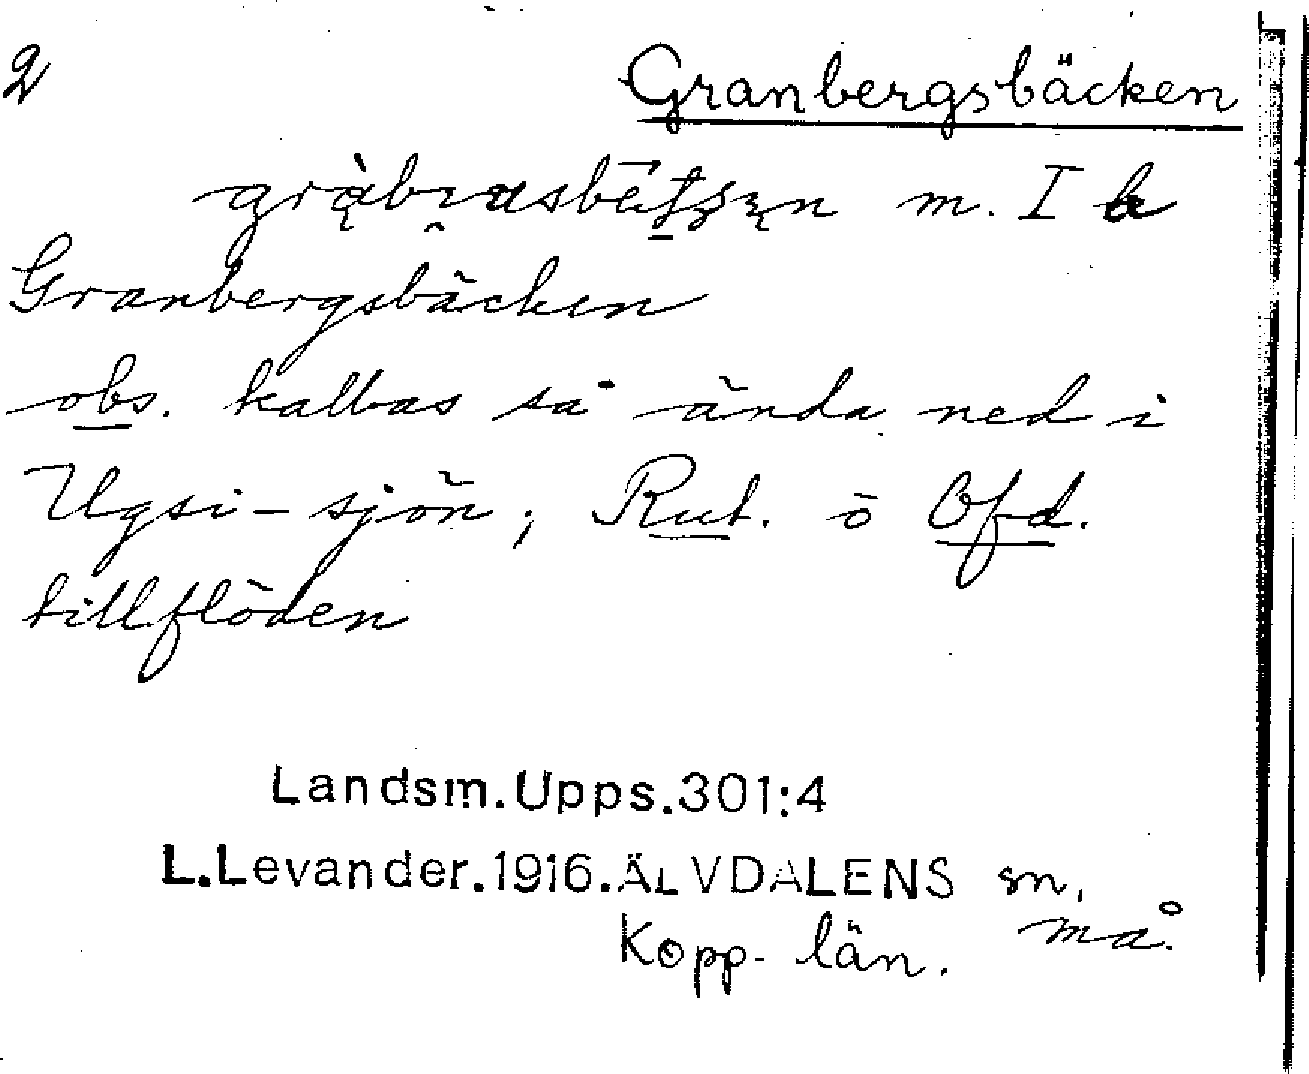 2
Granbergsbäcken
m. I
Granbergsbäcken
obs. kallas så ända ned i
Ugsi-sjön; Rut. ö Ofd.
tillflöden
Landsm.Upps.301:4
L.Levander.1916.ÄLVDALENS sn.
Kopp- län. må.